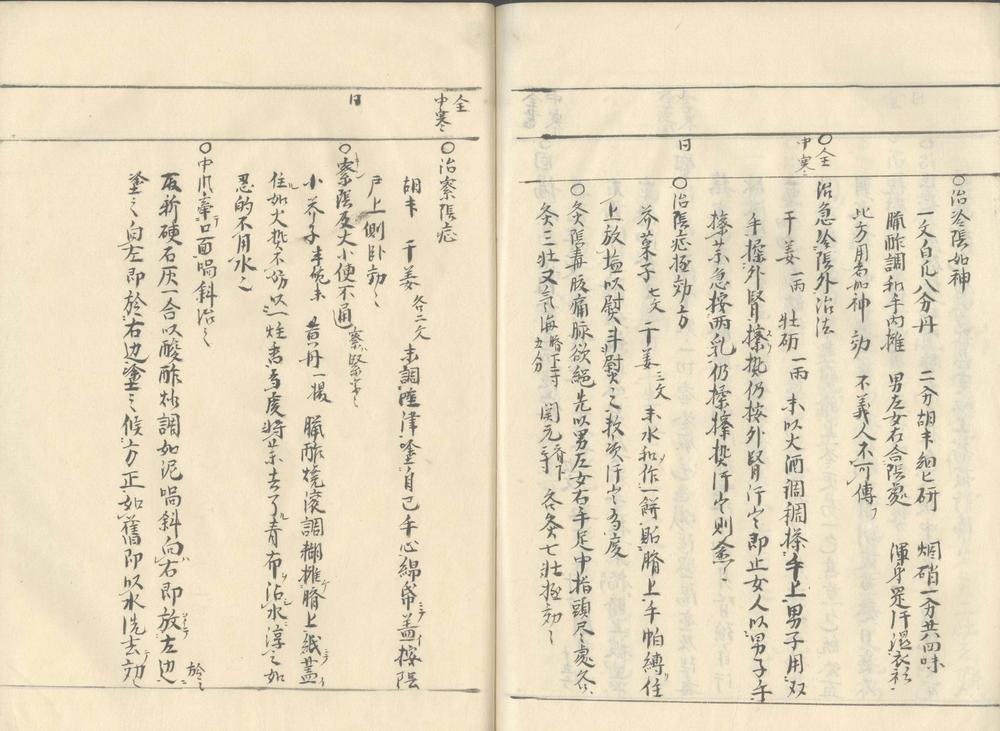 ○治冷陰如神
一文白凢八分丹 二分胡半細匕研 焔硝一分共四味
臘酢調和手内攤 男左女右合陰處 渾身是汗濕衣衫
此方用為如神効 不義人不可傳
○仝
中寒
治急冷陰外治法
干姜一兩 牡砺一兩 末以火酒調稠搽手上男子用双
手揉外腎搽热仍按外腎汗出即止女人以男子手
搽藥急按兩乳仍揉搽热汗出則愈
日
○治陰症極効方
芥菜子七文 干姜三文 末水和作一餅貼臍上手帕縛住
上放塩以熨斗熨之数次汗出為度
○灸陰毒腹痛脉欲絕先以男左女右手足中指頭尽處各
灸三壮又氣海臍下一寸五分 関元臍下三寸 各灸七壮極効
仝
中寒
○治寮陰症
胡半 干姜各二文 末調陸津塗自己手心綿帛盖按陰
戸上側卧効
日
○寮陰及大小便不通
小芥子半碗末 黄丹一撮 臘酢燒滾調糊攤臍上紙盖
住如火热不妨以一炷香為度将藥去了青布沾水淳之如
忍的不用水
○中爪牽口面喎斜治
取新硬石灰一合以酸酢炒調如泥喎斜向右即放左边
塗之向左即於右边塗之候方正如舊即以水洗去効